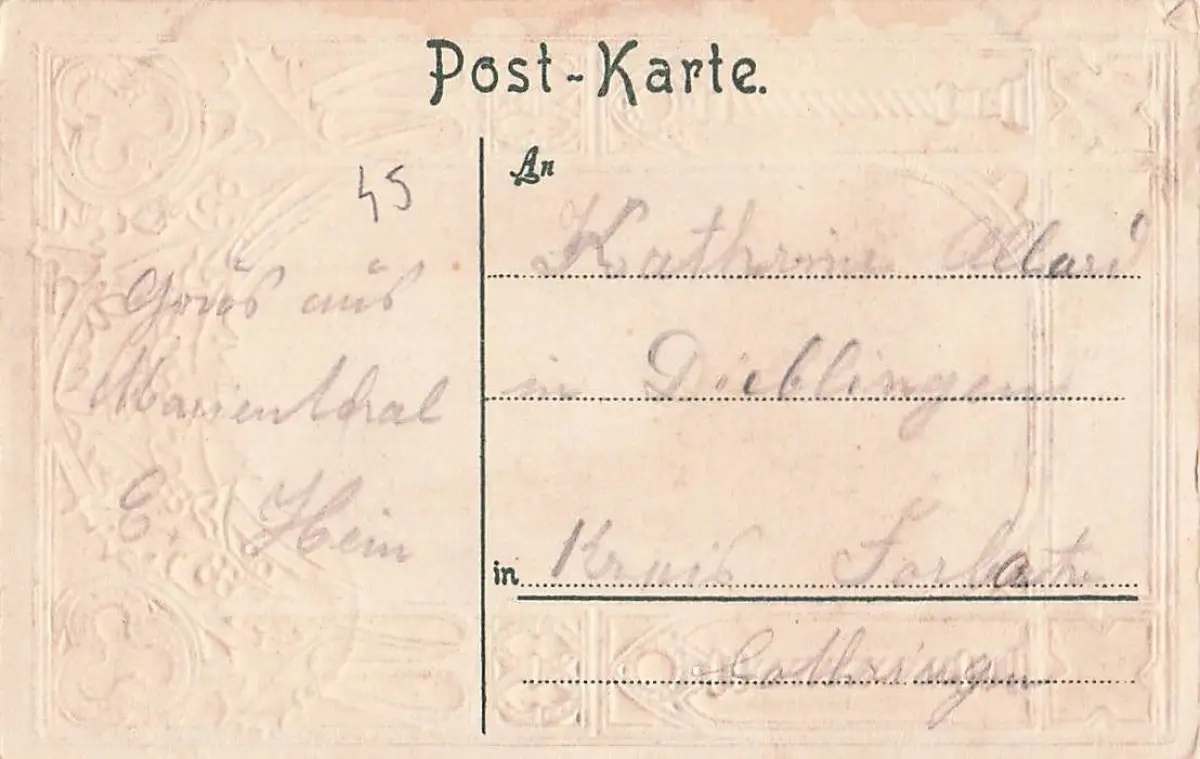 Post-Karte.
45
An
Kathrine Allard
in Dieblingen
in Kreis Forbach
Lothringen
Grüs aus
Marienthal
E. Hein